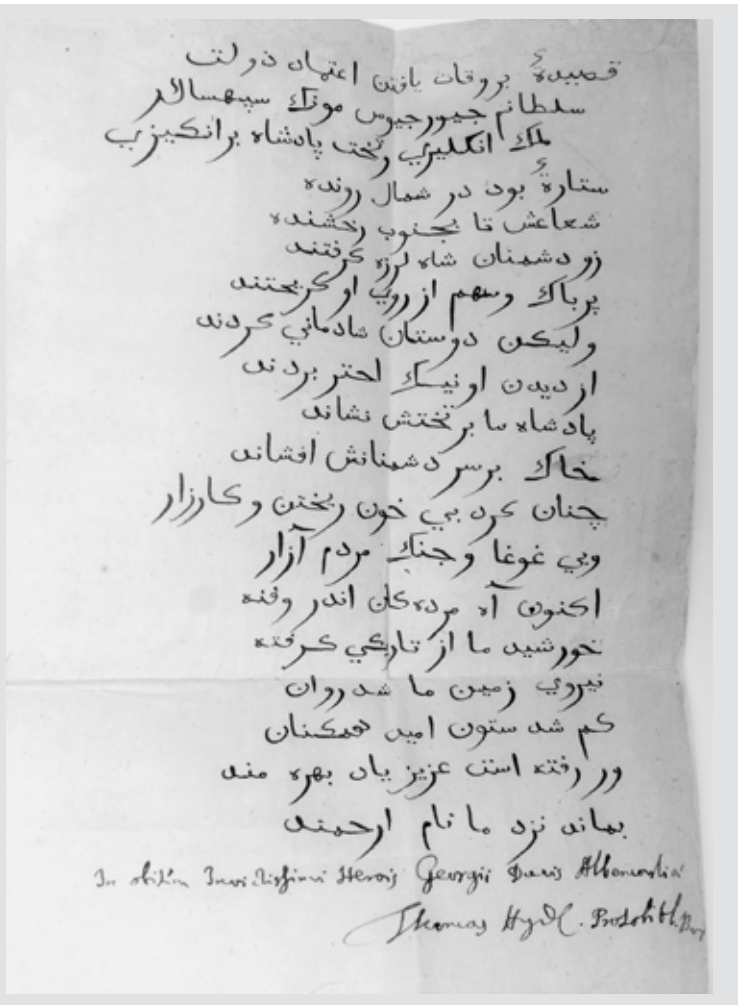 قصیدهٔ بر وفات یافتن اعتماد دولت
سلطانم جیورجیوس مونك سپهسالار
ملك انكلیزي تخت پادشاه برانكیزي
ستارهٔ بود در شمال رونده
شعاعش تا بجنوب رخشنده
زو دشمنان شاه لرزه كرفتند
پرباك وسهم از روي او كریختند
ولیكن دوستان شادماني كردند
از دیدن او نیك اختر بردند
پادشاه ما بر تختش نشاند
خاك برسر دشمنانش افشاند
چنان كرد بي خون ریختن و كارزار
وبي غوغا وجنك مردم آزار
اكنون آه مرده كان اندر وفته
خورشید ما از تاریكي كرفته
نیروي زمین ما شد روان
كم شد ستون امید همكنان
ور رفته است عزیز یاد بهره مند
بماند نزد ما نام ارجمند
In obitum Invictissimi Herois Georgii Ducis Albemarlii
Thomas Hyde. Protobibl.